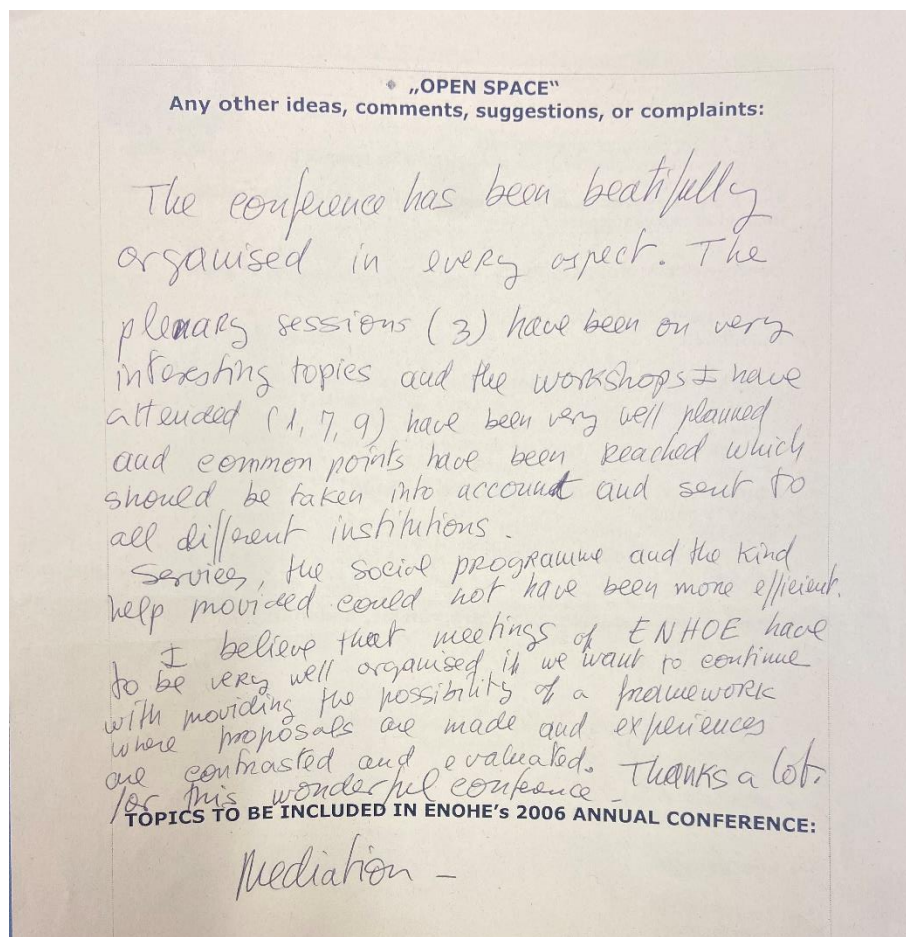 „OPEN SPACE"
Any other ideas, comments, suggestions, or complaints:
The conference has been beatifully
organised in every aspect. The
plenary sessions (3) have been on very
interesting topics and the workshops I have
attended (1, 7, 9) have been very well planned
and common points have been reached which
should be taken into account and sent to
all different institutions.
Services, the social programme and the kind
help provided could not have been more efficient.
I believe that meetings of ENHOE have
to be very well organised if we want to continue
with providing the possibility of a framework
where proposals are made and experiences
are contrasted and evaluated. Thanks a lot.
for this wonderful conference_
TOPICS TO BE INCLUDED IN ENOHE's 2006 ANNUAL CONFERENCE:
Mediation –